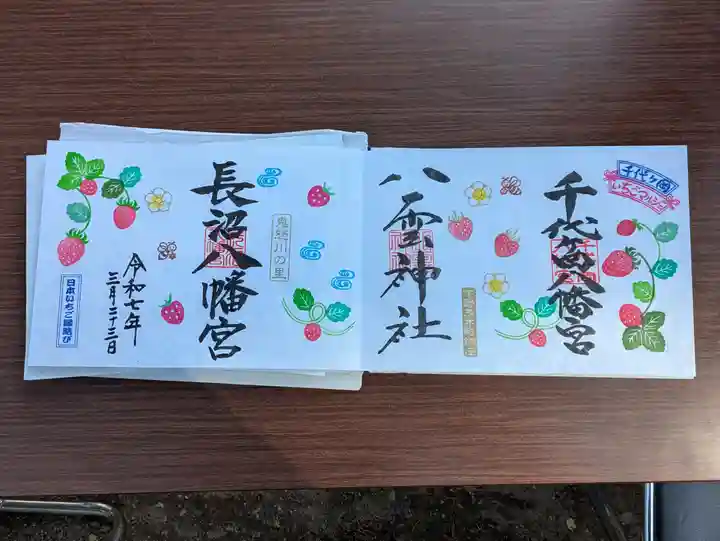 千代ヶ岡
いちごマルシェ
千代ヶ岡八幡宮
八雲神社
鬼怒川の里
長沼八幡宮
令和七年
三月二十三日
日本いちご縁結び